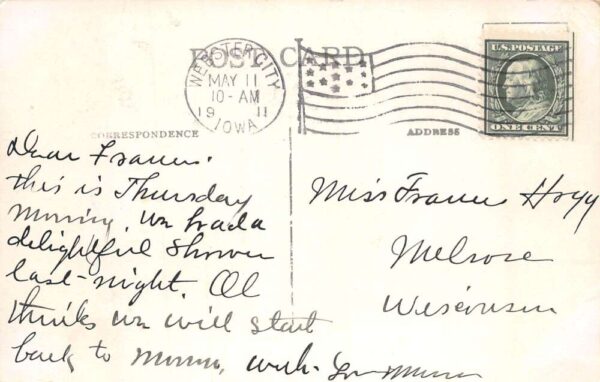 POST CARD
WEBSTER CITY
MAY 11
10-AM
1911
IOWA
U.S. POSTAGE
ONE CENT
CORRESPONDENCE
ADDRESS
Dear Frances.
this is Thursday
morning. We had a
delightful shower
last-night. Al
thinks we will start
back to
Miss Frances Hogg
Melrose
Wisconsin